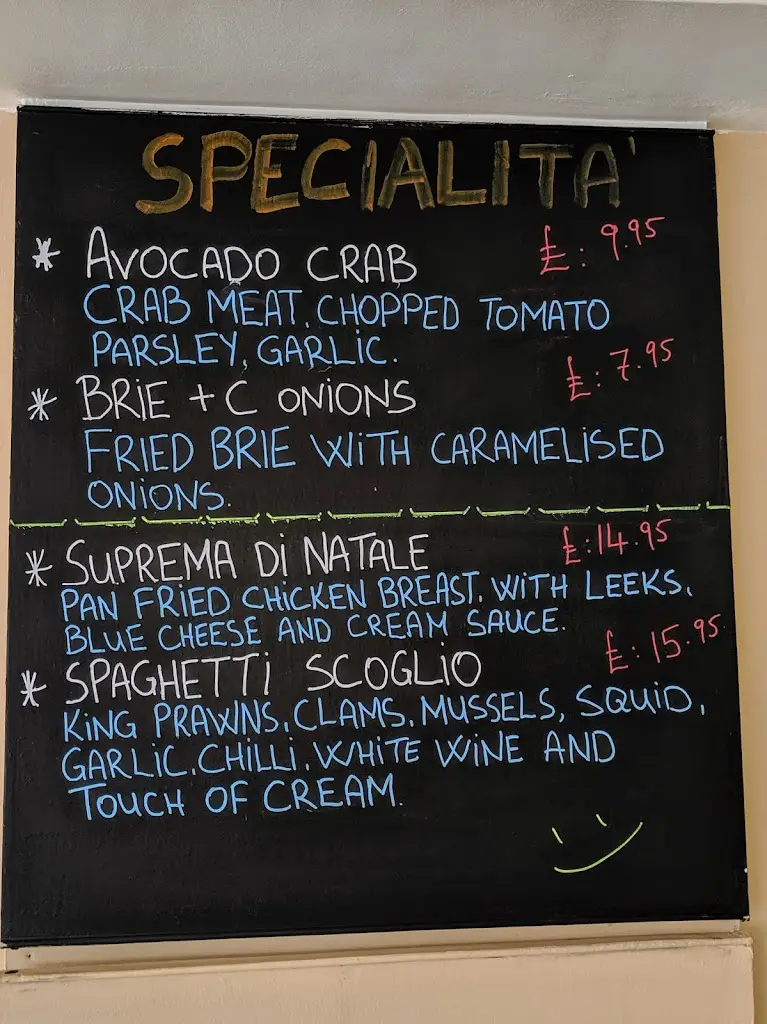 SPECIALITA'
* AVOCADO CRAB £: 9.95
CRAB MEAT, CHOPPED TOMATO
PARSLEY, GARLIC.
* BRIE + C ONIONS £: 7.95
FRIED BRIE WITH CARAMELISED
ONIONS.
* SUPREMA DI NATALE £: 14.95
PAN FRIED CHICKEN BREAST, WITH LEEKS,
BLUE CHEESE AND CREAM SAUCE.
* SPAGHETTI SCOGLIO £: 15.95
KING PRAWNS, CLAMS, MUSSELS, SQUID,
GARLIC, CHILLI, WHITE WINE AND
TOUCH OF CREAM.